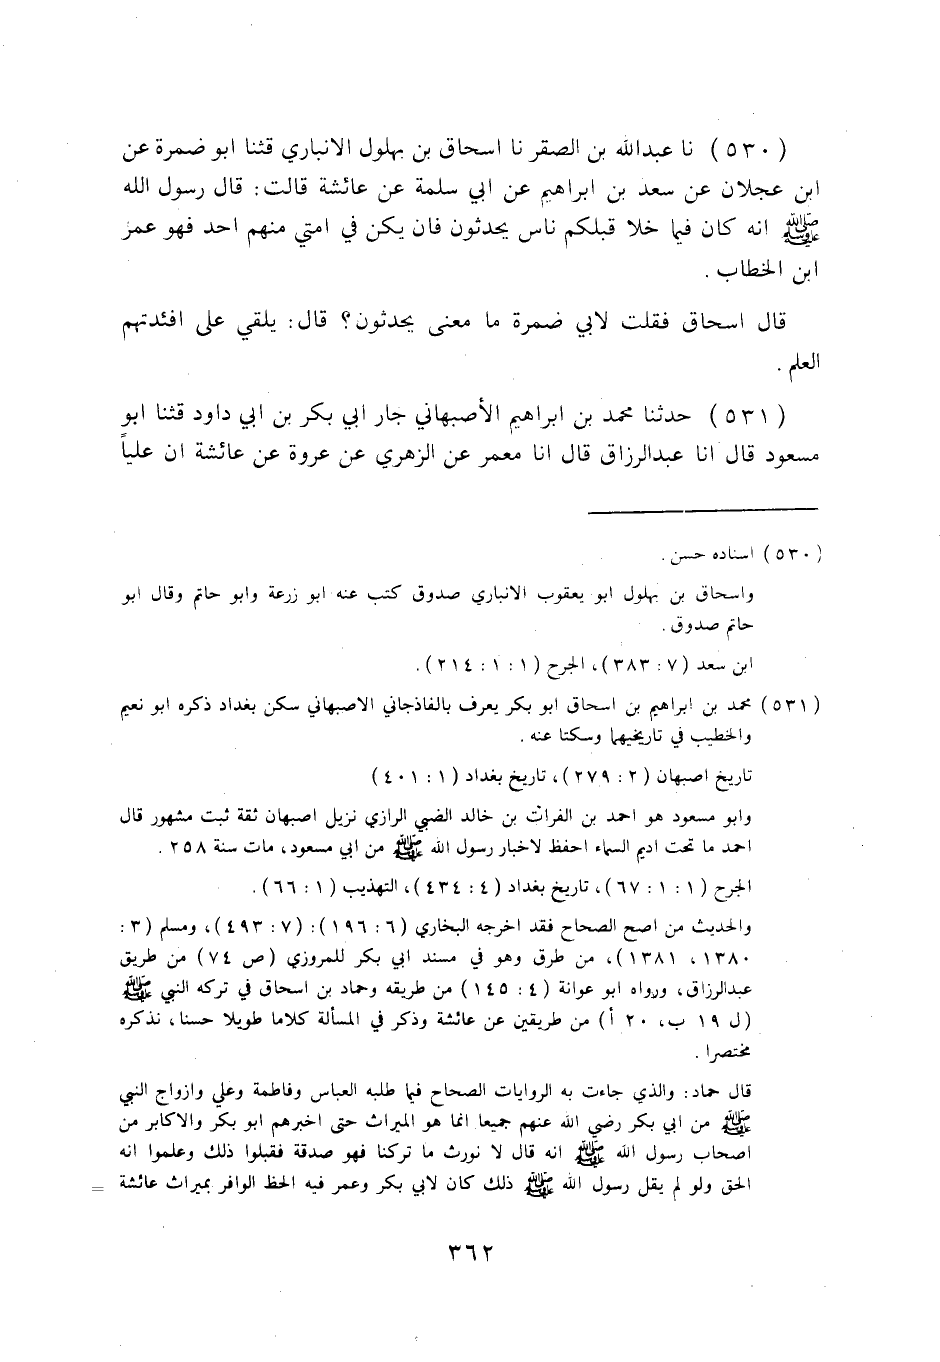 (٥٣٠) نا عبدالله بن الصقر نا اسحاق بن بهلول الانباري قثنا ابو ضمرة عن
ابن عجلان عن سعد بن ابراهيم عن ابي سلمة عن عائشة قالت: قال رسول الله
ﷺ انه كان فيما خلا قبلكم ناس يحدثون فان يكن في امتي منهم احد فهو عمر
ابن الخطاب.
قال اسحاق فقلت لابي ضمرة ما معنى يحدثون؟ قال: يلقي على افئدتهم
العلم.
(٥٣١) حدثنا محمد بن ابراهيم الأصبهاني جار ابي بكر بن ابي داود قثنا ابو
مسعود قال انا عبدالرزاق قال انا معمر عن الزهري عن عروة عن عائشة ان علياً
(٥٣٠) اسناده حسن.
واسحاق بن بهلول ابو يعقوب الانباري صدوق كتب عنه ابو زرعة وابو حاتم وقال ابو
حاتم صدوق.
ابن سعد (٧: ٣٨٣)، الجرح (١: ١: ٢١٤).
(٥٣١) محمد بن ابراهيم بن اسحاق ابو بكر يعرف بالفاذجاني الاصبهاني سكن بغداد ذكره ابو نعيم
والخطيب في تاريخيهما وسكتا عنه.
تاريخ اصبهان (٢: ٢٧٩)، تاريخ بغداد (١: ٤٠١)
وابو مسعود هو احمد بن الفرات بن خالد الضبي الرازي نزيل اصبهان ثقة ثبت مشهور قال
احمد ما تحت اديم السماء احفظ لاخبار رسول الله ﷺ من ابي مسعود، مات سنة ٢٥٨.
الجرح (١: ١: ٦٧)، تاريخ بغداد (٤: ٤٣٤)، التهذيب (١: ٦٦).
والحديث من اصح الصحاح فقد اخرجه البخاري (٦: ١٩٦): (٧: ٤٩٣)، ومسلم (٣:
١٣٨٠، ١٣٨١)، من طرق وهو في مسند ابي بكر للمروزي (ص ٧٤) من طريق
عبدالرزاق، ورواه ابو عوانة (٤: ١٤٥) من طريقه وحماد بن اسحاق في تركه النبي ﷺ
(ل ١٩ ب، ٢٠ أ) من طريقين عن عائشة وذكر في المسألة كلاما طويلا حسنا، نذكره
مختصرا.
قال حماد: والذي جاءت به الروايات الصحاح فيما طلبه العباس وفاطمة وعلي وازواج النبي
ﷺ من ابي بكر رضي الله عنهم جميعا انما هو الميراث حتى اخبرهم ابو بكر والاكابر من
اصحاب رسول الله ﷺ انه قال لا نورث ما تركنا فهو صدقة فقبلوا ذلك وعلموا انه
الحق ولو لم يقل رسول الله ﷺ ذلك كان لابي بكر وعمر فيه الحظ الوافر بميراث عائشة =
٣٦٢